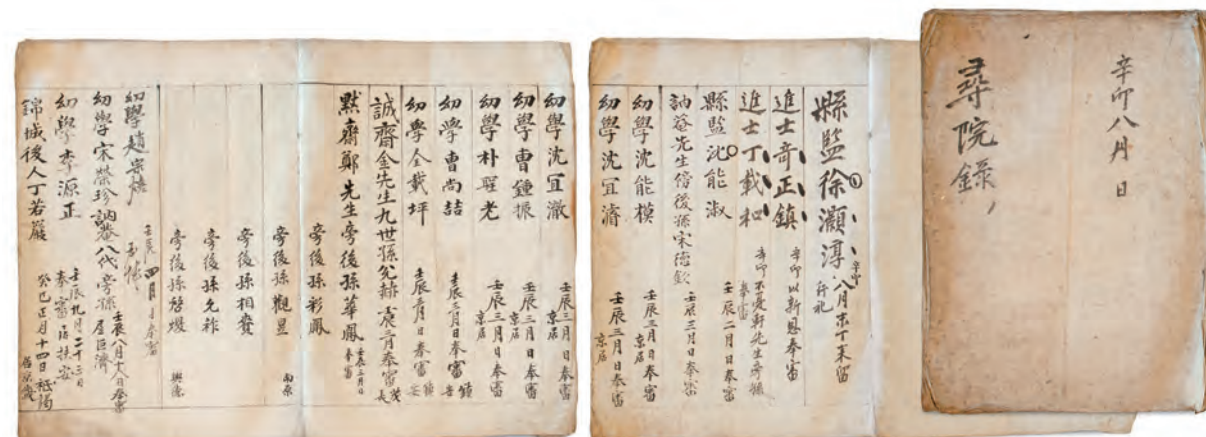 辛卯八月 日
尋院錄
縣監徐灝淳 辛卯八月末丁來留 行祀
進士奇正鎭 辛卯以新恩奉審
進士丁載和 辛卯不憂軒先生旁孫 奉審
縣監沈能淑 壬辰二月日奉審
訥菴先生傍後孫宋德欽 壬辰三月日奉審
幼學沈能模 壬辰三月日奉審 京居
幼學沈宜濬 壬辰三月日奉審 京居
幼學沈宜澈 壬辰三月日奉審 京居
幼學曹鍾振 壬辰三月日奉審 京居
幼學朴聖老 壬辰三月日奉審 京居
幼學曹尚喆 壬辰三月日奉審
幼學金載坪 壬辰三月日奉審
誠齋金先生九世孫允赫 壬辰三月奉審 茂長
默齋鄭先生旁後孫華鳳 壬辰三月日奉審
旁後孫彩鳳
旁後孫觀昱 南原
旁後孫相賚
旁後孫允祚
旁後孫啓墺 興德
幼學趙 壬辰四月日奉審
幼學宋榮珍訥菴八代旁孫 壬辰八月十八日奉審
幼學李源正 壬辰九月二十三日奉審 居扶安
錦城後人丁若巖 癸巳正月十四日祗謁